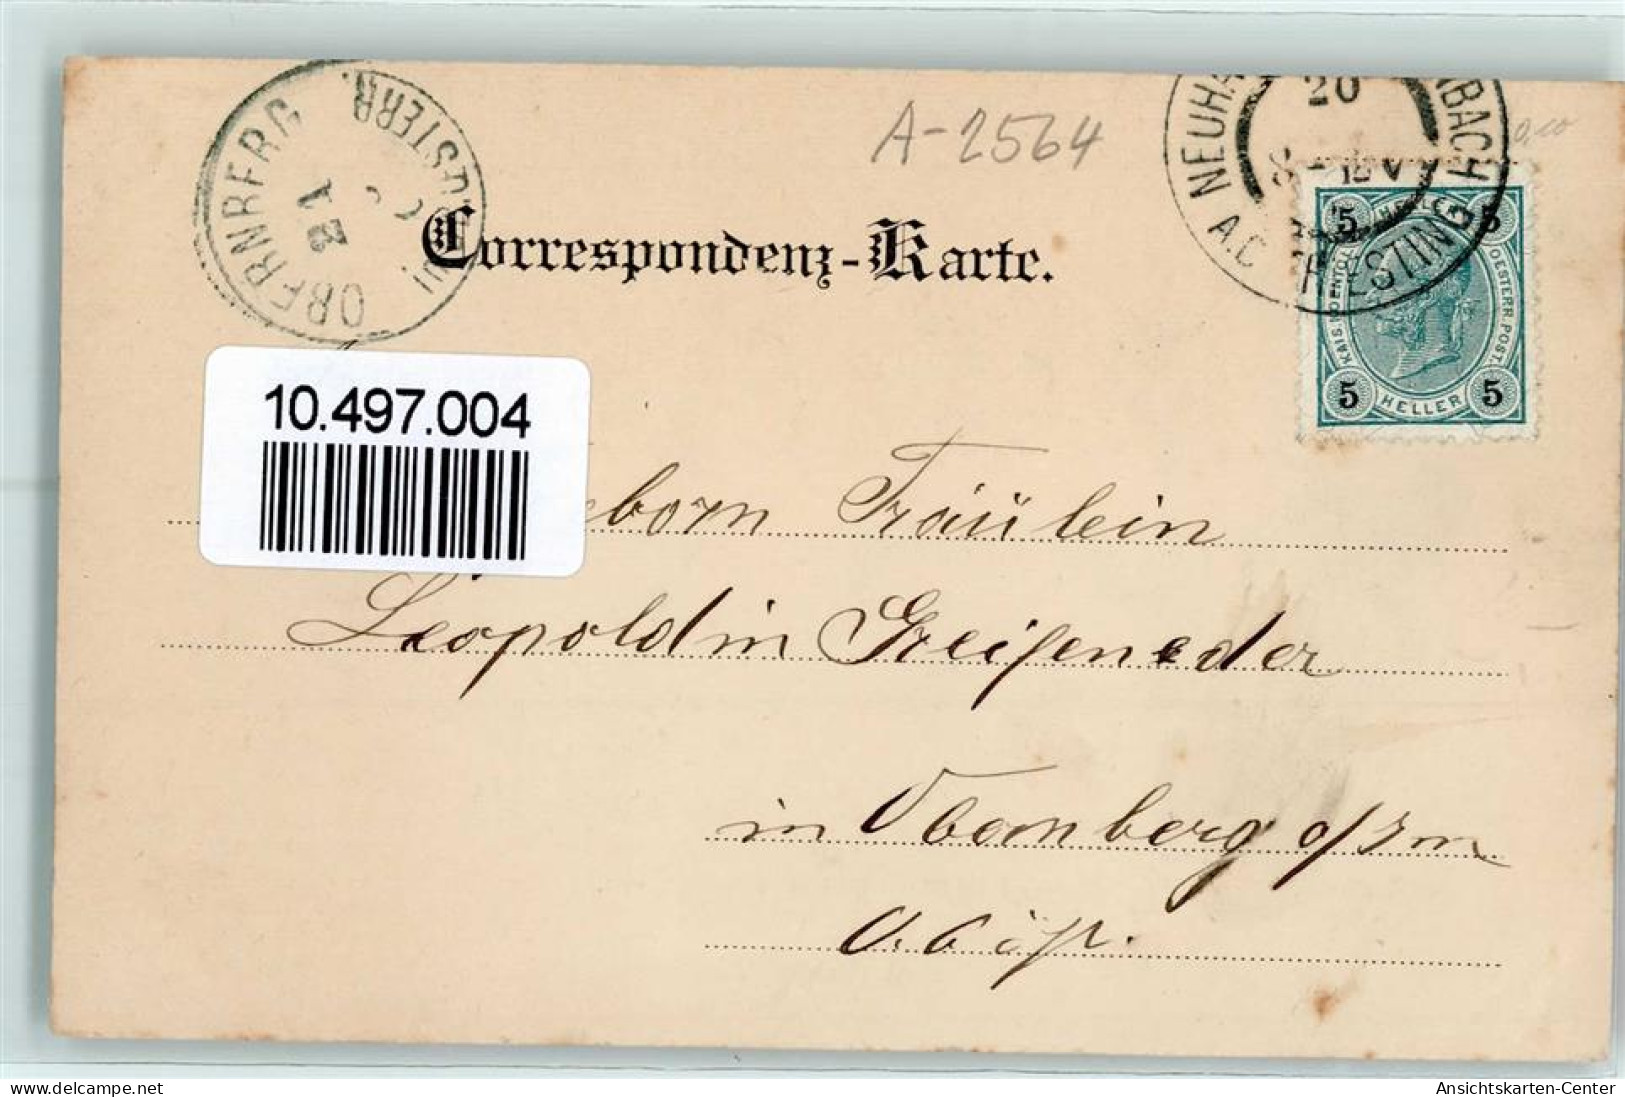 OBERNBERG ÖSTERR.
21
A-2564
NEUHA
BACH
20
A.D. TRIESTING
Correspondenz-Karte.
5 HELLER 5
KAIS. KOENIGL. OESTERR. POST.
5 HELLER 5
10.497.004
eborn Fräulein
Leopoldin Greifeneder
in Obernberg o/Inn
O. Öst.
www.delcampe.net
Ansichtskarten-Center